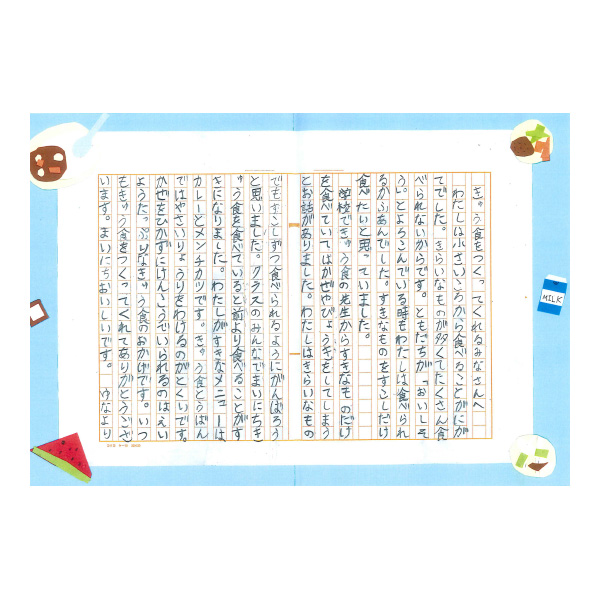 きゅう食をつくってくれるみなさんへ
わたしは小さいころから食べることがにが
てでした。きらいなものが多くてたくさん食
べられないからです。ともだちが「おいしそ
う。」とよろこんでいる時もわたしは食べられ
るかふあんでした。すきなものをすこしだけ
食べたいと思っていました。
学校できゅう食の先生からすきなものだけ
を食べていてはかぜやびょうきをしてしまう
とお話がありました。わたしはきらいなもの
でもすこしずつ食べられるようにがんばろう
と思いました。クラスのみんなでまいにちき
ゅう食を食べていると前より食べることがす
きになりました。わたしがすきなメニューは、
カレーとメンチカツです。きゅう食とうばん
ではやさいりょうりをわけるのがとくいです。
かぜをひかずにけんこうでいられるのはえい
ようたっぷりなきゅう食のおかげです。いつ
もきゅう食をつくってくれてありがとうござ
います。まいにちおいしいです。
ゆなより
MILK